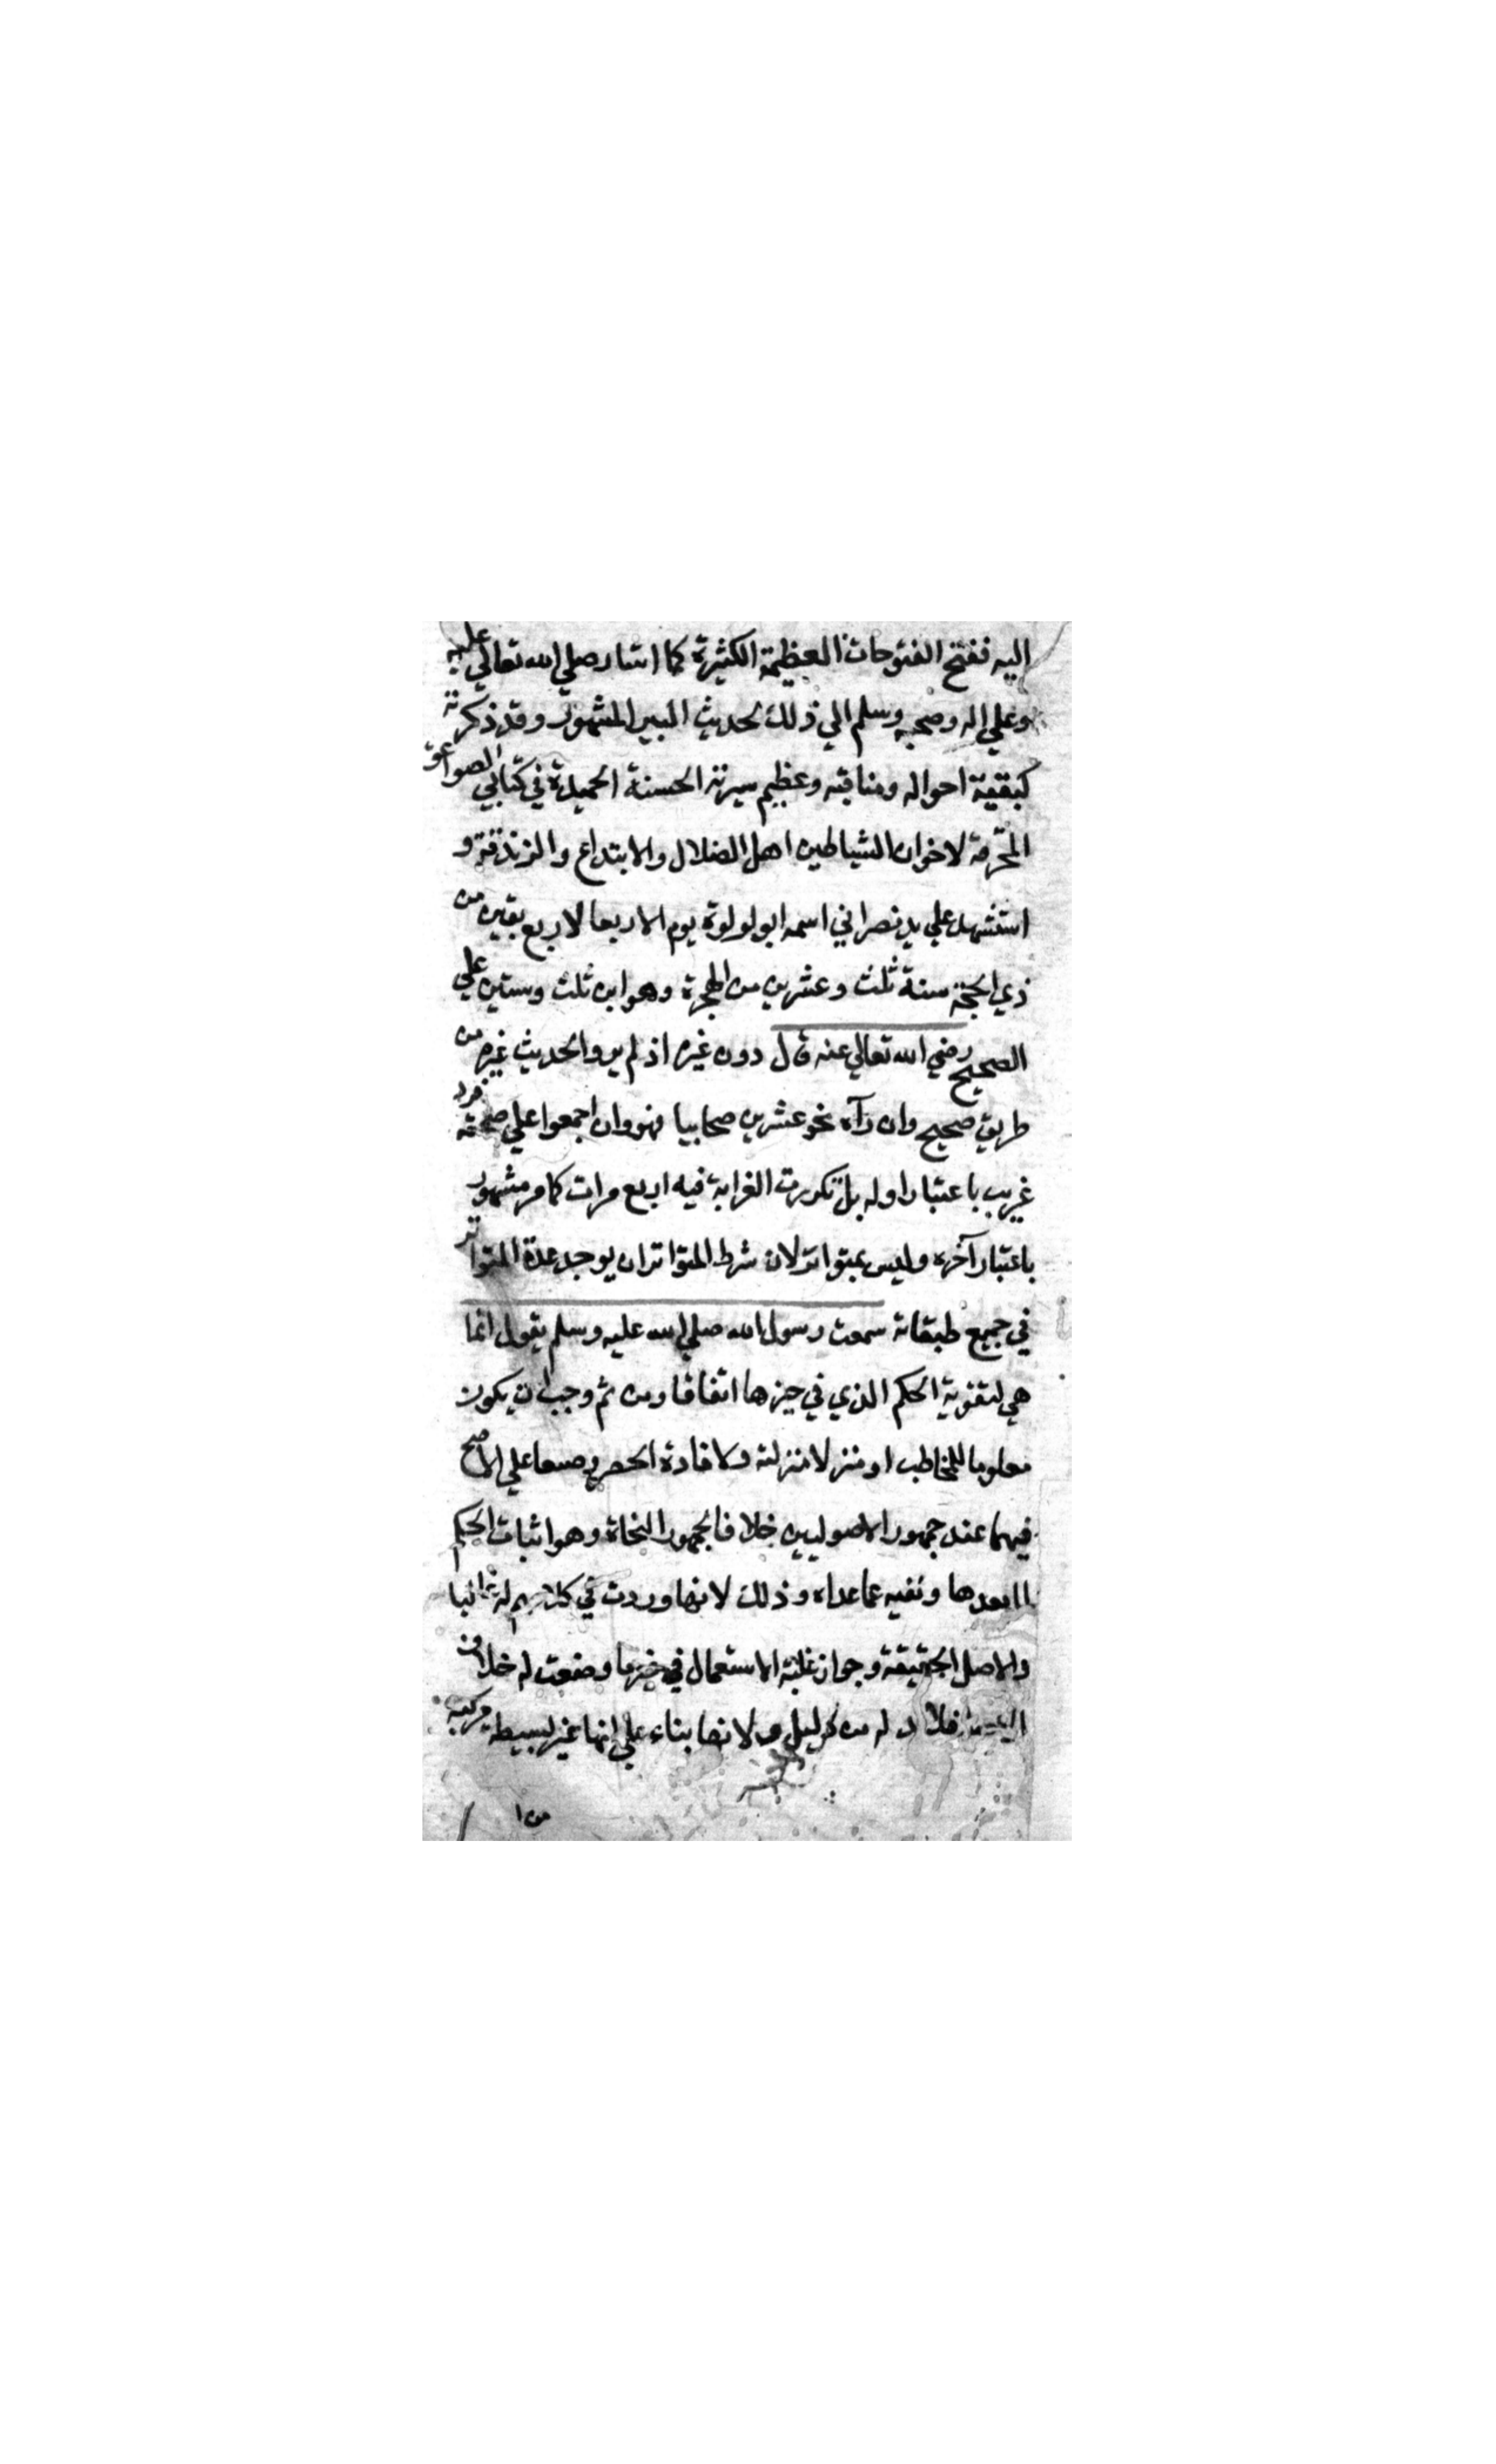 اليه ففتح الفتوحات العظيمة الكثيرة كما اشار صلي الله تعالي عليه
وعلي اله وصحبه وسلم الي ذلك لحديث البير المشهور وقد ذكرته
كبقية احواله ومناقبه وعظيم سيرته الحسنة الحميدة في كتابي الصواعق
المحرقة لاخوان الشياطين اهل الضلال والابتداع والزندقة و
استشهد علي يد نصراني اسمه ابو لولوة يوم الاربعا لاربع بقين من
ذي الحجة سنة ثلث وعشرين من الهجرة وهو ابن ثلث وستين علي
الصحيح رضي الله تعالي عنه قال دون غيره اذ لم يرو الحديث غيره من
طريق صحيح وان رآه نحو عشرين صحابيا فهو وان اجمعوا علي صحته فرد
غريب باعتبار اوله بل تكررت الغرابة فيه اربع مرات كما مر مشهور
باعتبار آخره وليس بمتواتر لان شرط المتواتر ان يوجد عدة المتواتر
في جميع طبقاته سمعت رسول الله صلي الله عليه وسلم يقول انما
هي لتقوية الحكم الذي في حيزها اتفاقا ومن ثم وجب ان يكون
معلوما للمخاطب او منزلا منزلته ولافادة الحصر وضعا علي الاصح
فيهما عند جمهور الاصوليين خلافا لجمهور النحاة وهو اثبات الحكم
لما بعدها ونفيه عما عداه وذلك لانها وردت في كلامهم له غالبا
والاصل الحقيقة وجواز غلبة الاستعمال في غير ما وضعت له خلاف
فلا له من دليل ولانها بناء علي انها غير بسيطة مركبة
من ا